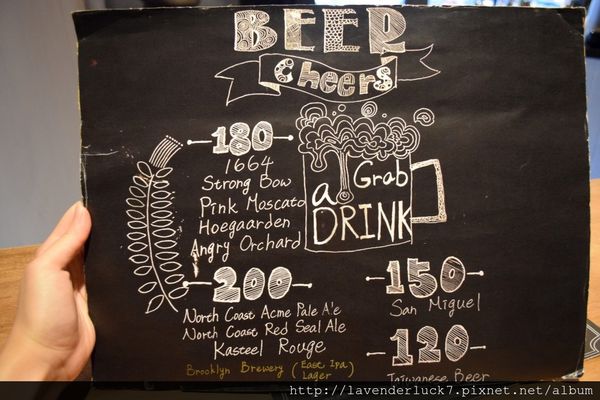 BEER
Cheers
180
1664
Strong Bow
Pink Moscato
Hoegaarden
Angry Orchard
a Grab
DRINK
200
North Coast Acme Pale A'e
North Coast Red Seal Ale
Kasteel Rouge
Brooklyn Brewery (East Ipa)
Lager
150
San Miguel
120
Taiwanese Beer
http://lavenderluck7.pixnet.net/album